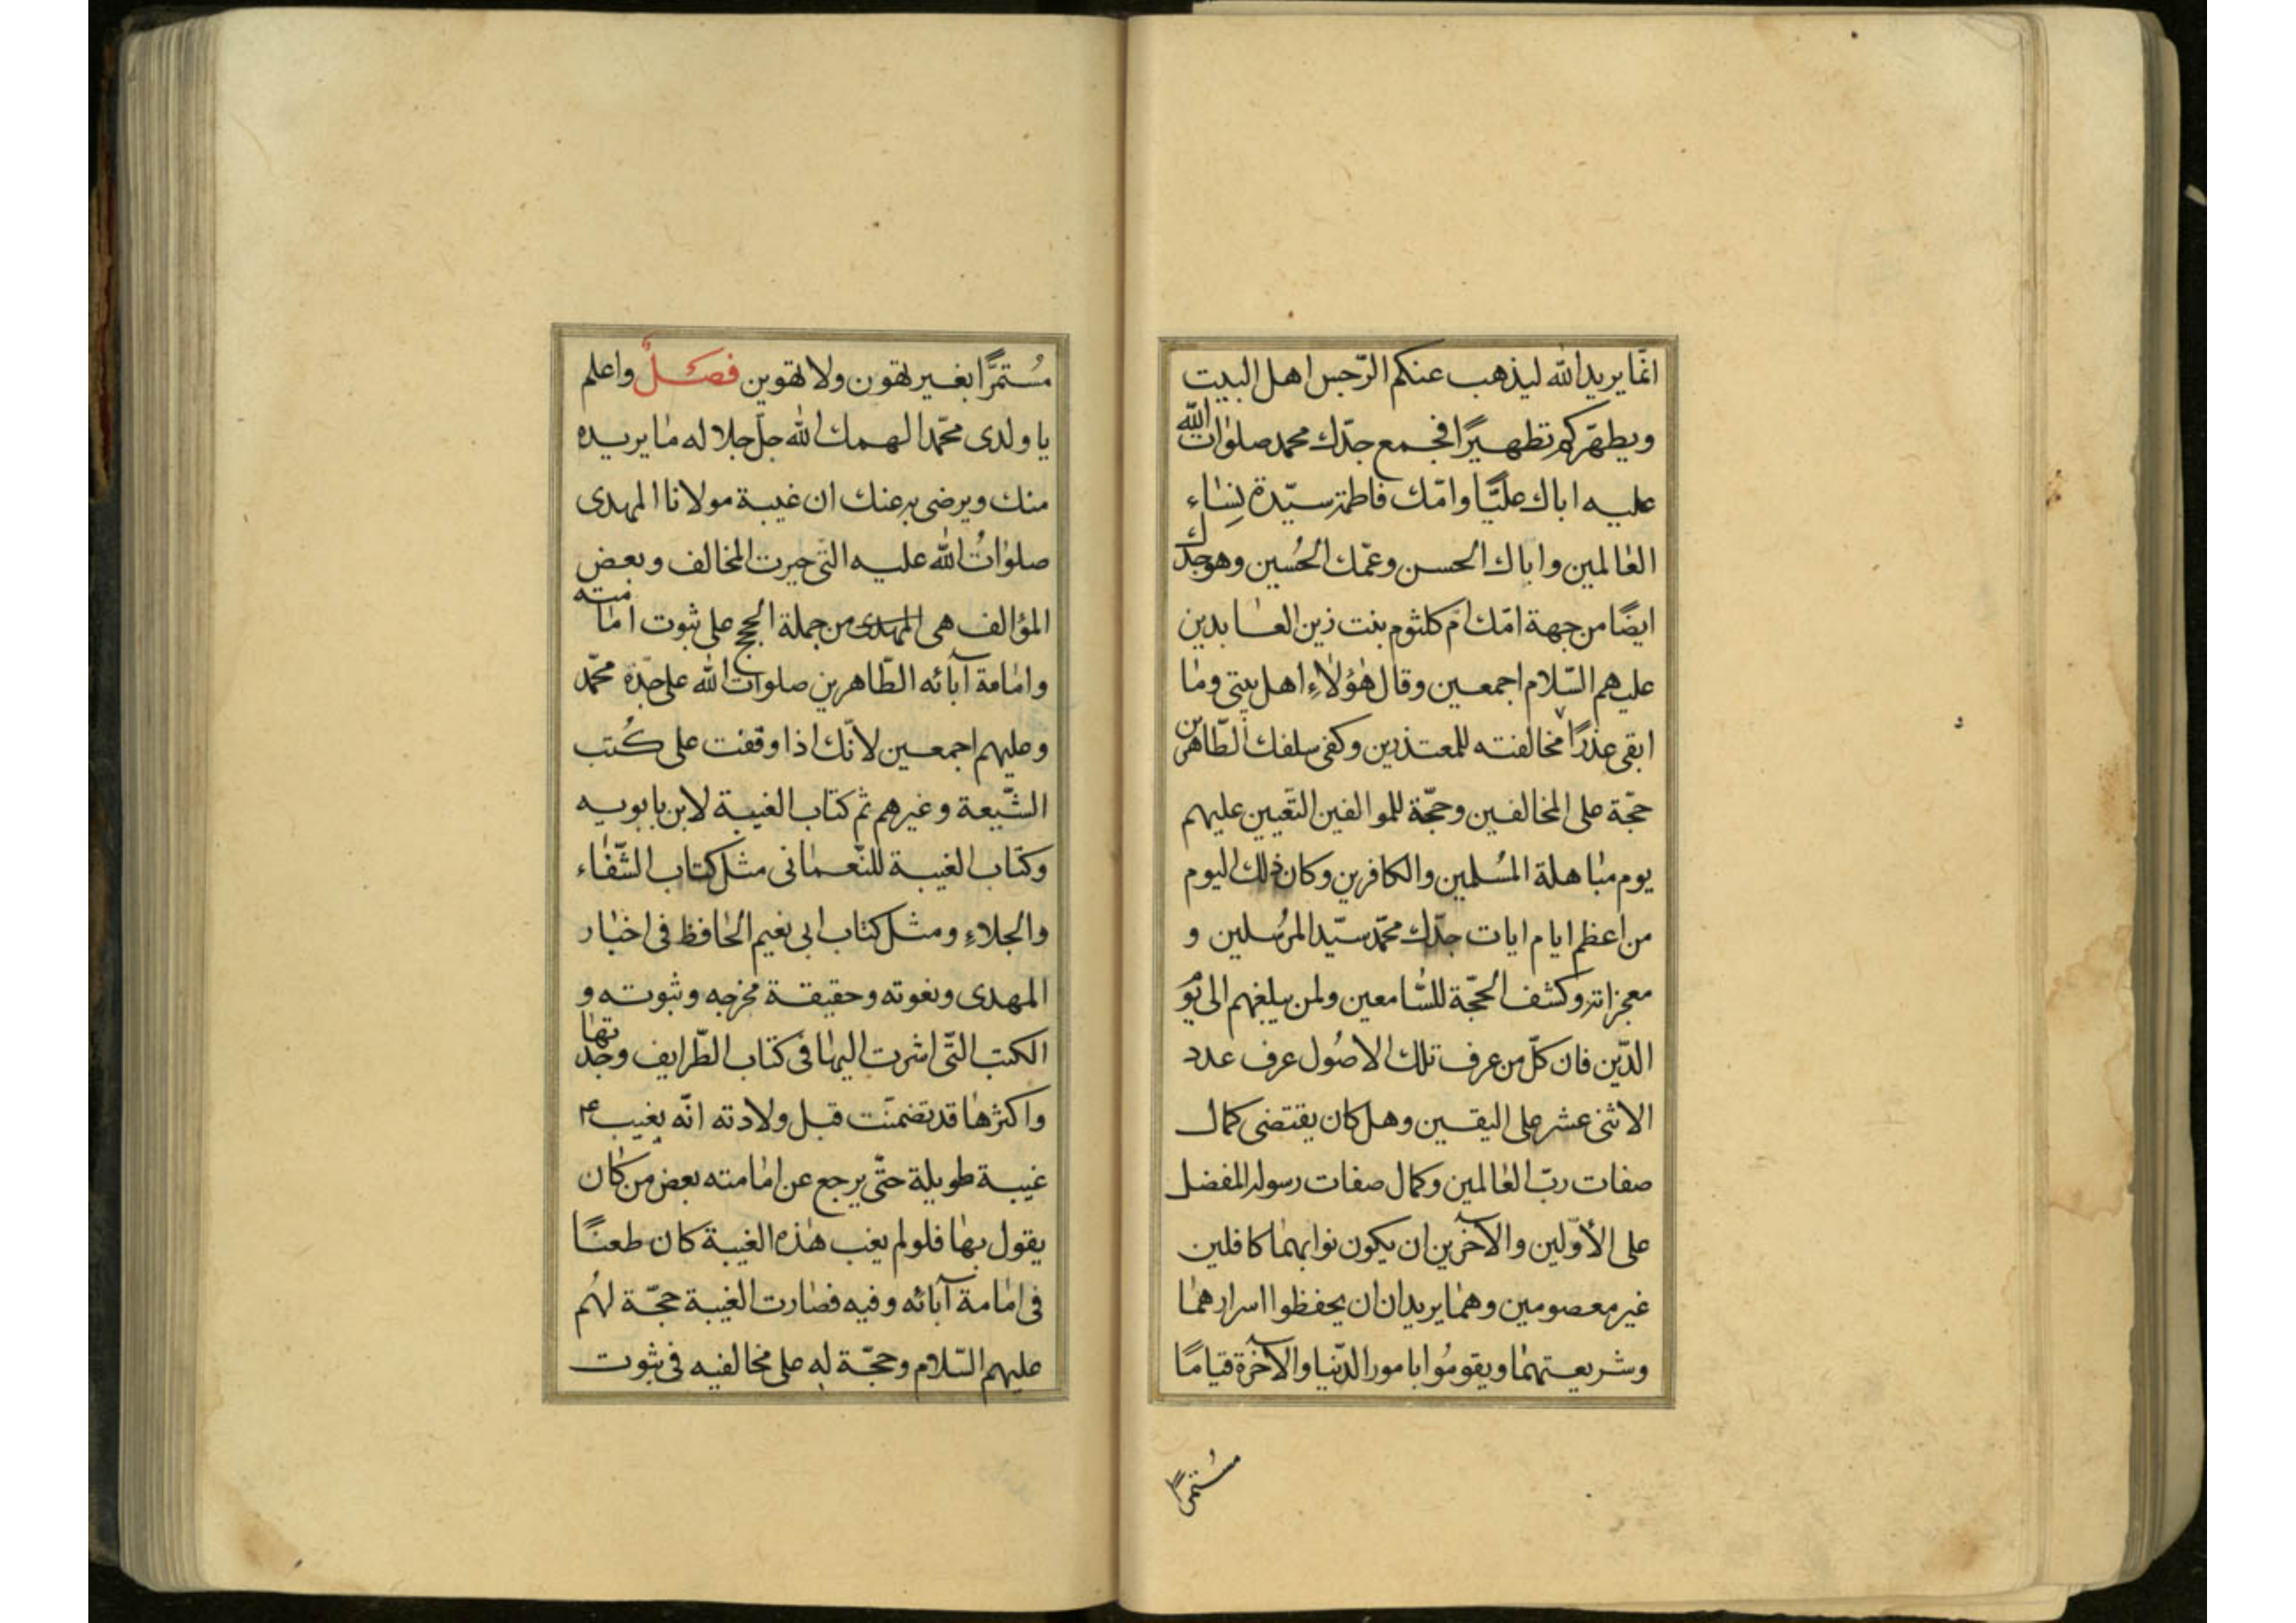 انّما يريد الله ليذهب عنكم الرّجس اهل البيت
ويطهّركم تطهيرًا فجمع جدّك محمد صلوات الله
عليه اباك عليًّا وامّك فاطمة سيّدة نساء
العالمين واباك الحسن وعمّك الحُسين وهو جدّك
ايضًا من جهة امّك امّ كلثوم بنت زين العابدين
عليهم السّلام اجمعين وقال هٰؤلاءِ اهل بيتى وما
ابقى عذرًا لمخالفته للمعتذرين وكفى سلفك الطّاهرين
حجّة على المخالفين وحجّة للموالفين التّعيين عليهم
يوم مباهلة المُسلمين والكافرين وكان ذلك اليوم
من اعظم ايام ايات جدّك محمّد سيّد المرُسلين و
معجزاته وكشف الحجّة للسّامعين ولمن يبلغهم الى يَوم
الدّين فان كلّ من عرف تلك الاصُول عرف عدد
الاثنى عشر على اليقين وهل كان يقتضى كمال
صفات ربّ العالمين وكمال صفات رسوله المفضل
على الأوّلين والآخرين ان يكون نوابهما كافلين
غير معصومين وهما يريدان ان يحفظوا اسرارهما
وشريعتهما ويقومُوا بامور الدّنيا والآخرة قيامًا
مُستمرًّا
مُستمرًّا بغير تهون ولا تهوين فصلٌ واعلم
يا ولدى محمّد الهمك الله جلّ جلاله ما يريده
منك ويرضى به عنك ان غيبة مولانا المهدى
صلواتُ الله عليه التى حيرت المخالف وبعض
المؤالف هى المهدى من جملة الحجج على ثبوت امامته
وامامة آبائه الطّاهرين صلوات الله على جدّه محمّد
وعليهم اجمعين لانّك اذا وقفت على كُتب
الشّيعة وغيرهم ثم كتاب الغيبة لابن بابويه
وكتاب الغيبة للنّعمانى مثل كتاب الشّفاء
والجلاءِ ومثل كتاب ابى نعيم الحافظ فى اخبار
المهدى ونعوته وحقيقة مخرجه وثبوته و
الكتب التّى اشرت اليها فى كتاب الطّرايف وجدتها
واكثرها قد تضمنّت قبل ولادته انّه يغيب ع
غيبة طويلة حتّى يرجع عن امامته بعض من كان
يقول بها فلو لم يغب هذه الغيبة كان طعنًا
فى امامة آبائه وفيه فصارت الغيبة حجّة لهُم
عليهم السّلام وحجّة له على مخالفيه فى ثبوت